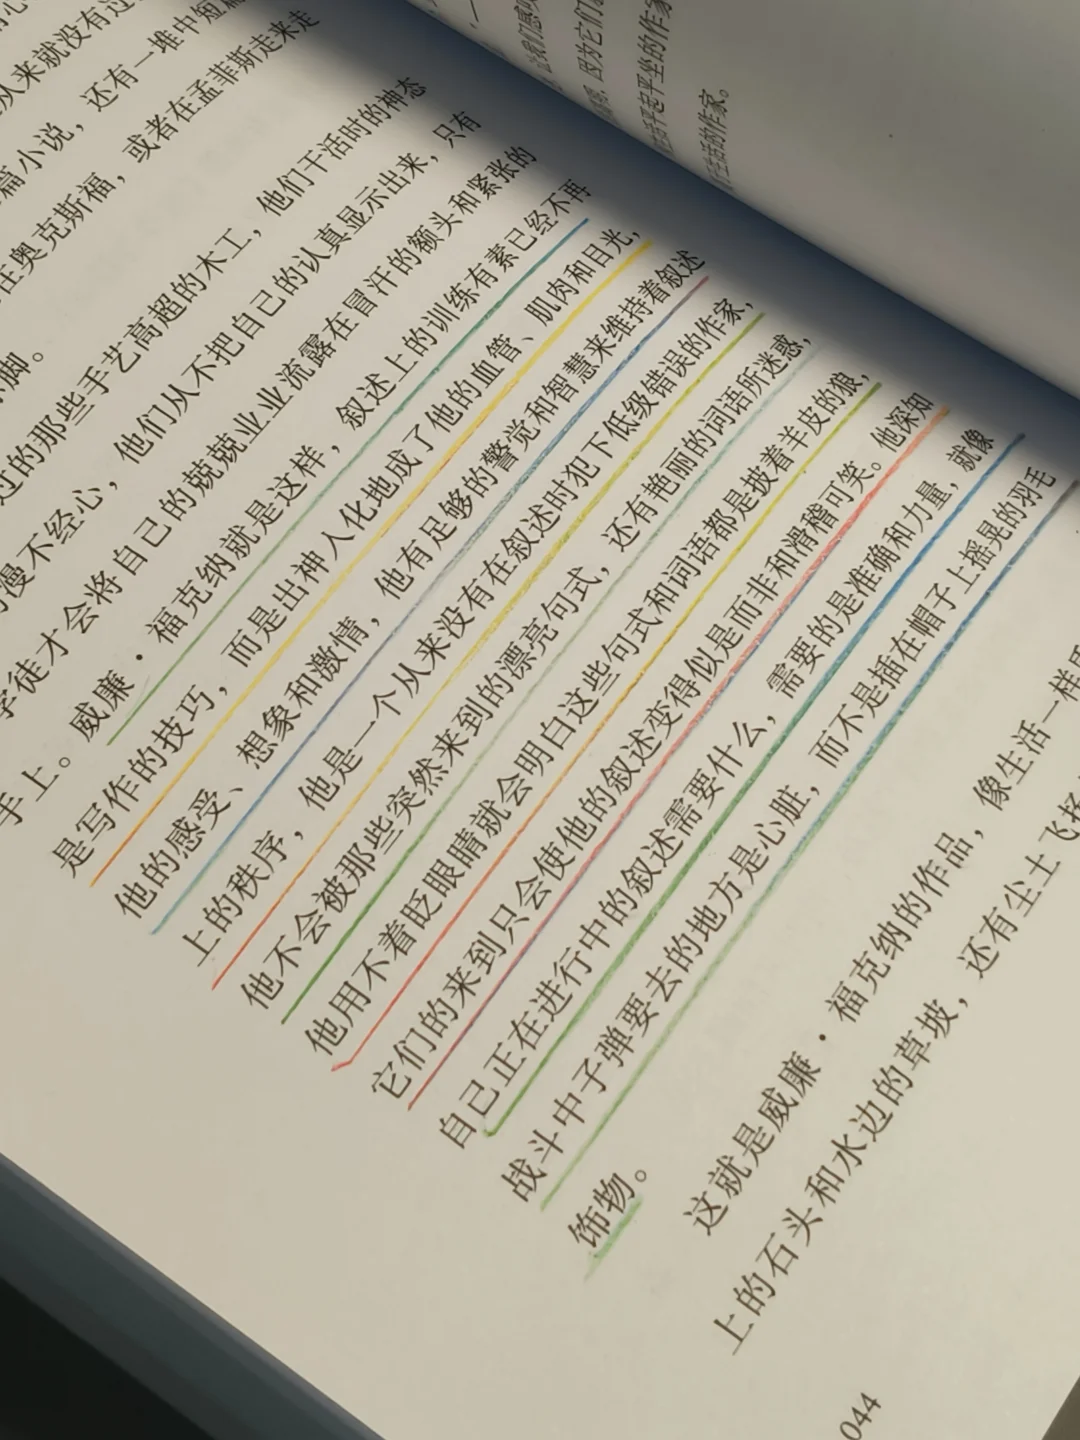 从来就没有过
篇小说，还有一堆中短篇
在奥克斯福，或者在孟菲斯走来走
脚。
过的那些手艺高超的木工，他们干活时的神态
漫不经心，他们从不把自己的认真显示出来，只有
学徒才会将自己的兢兢业业流露在冒汗的额头和紧张的
手上。威廉·福克纳就是这样，叙述上的训练有素已经不再
是写作的技巧，而是出神入化地成了他的血管、肌肉和目光，
他的感受、想象和激情，他有足够的警觉和智慧来维持着叙述
上的秩序，他是一个从来没有在叙述时犯下低级错误的作家，
他不会被那些突然来到的漂亮句式，还有艳丽的词语所迷惑，
他用不着眨眼睛就会明白这些句式和词语都是披着羊皮的狼，
它们的来到只会使他的叙述变得似是而非和滑稽可笑。他深知
自己正在进行中的叙述需要什么，需要的是准确和力量，就像
战斗中子弹要去的地方是心脏，而不是插在帽子上摇晃的羽毛
饰物。
这就是威廉·福克纳的作品，像生活一样
上的石头和水边的草坡，还有尘土飞扬
044
因为它们
起平坐的作家
生活的作家。